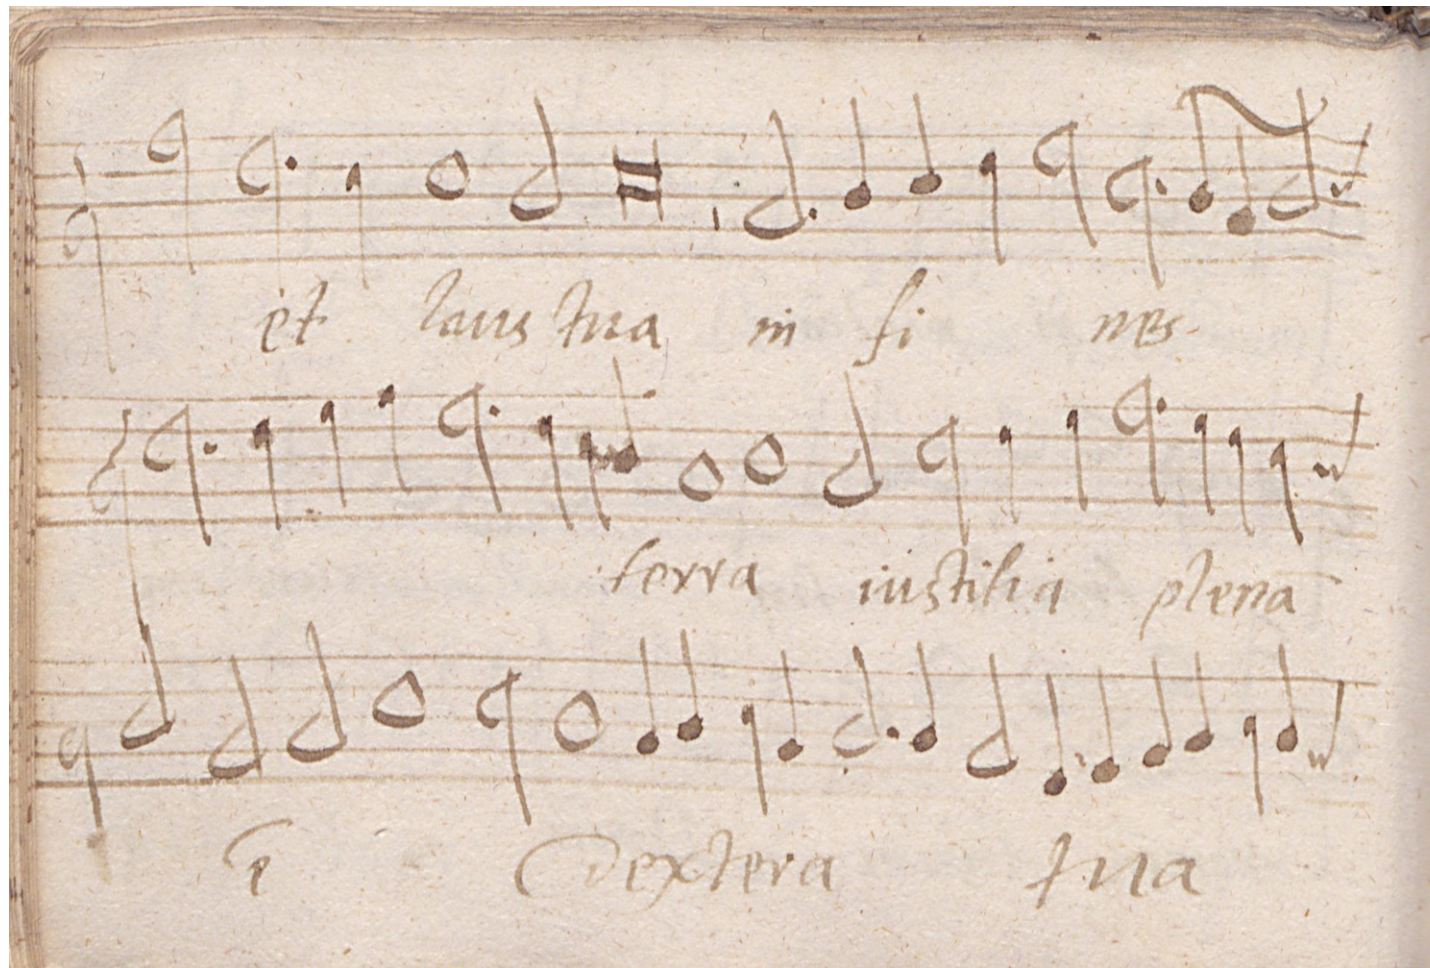 et laus tua in fi nes
terra iustitia plena
Dextera tua